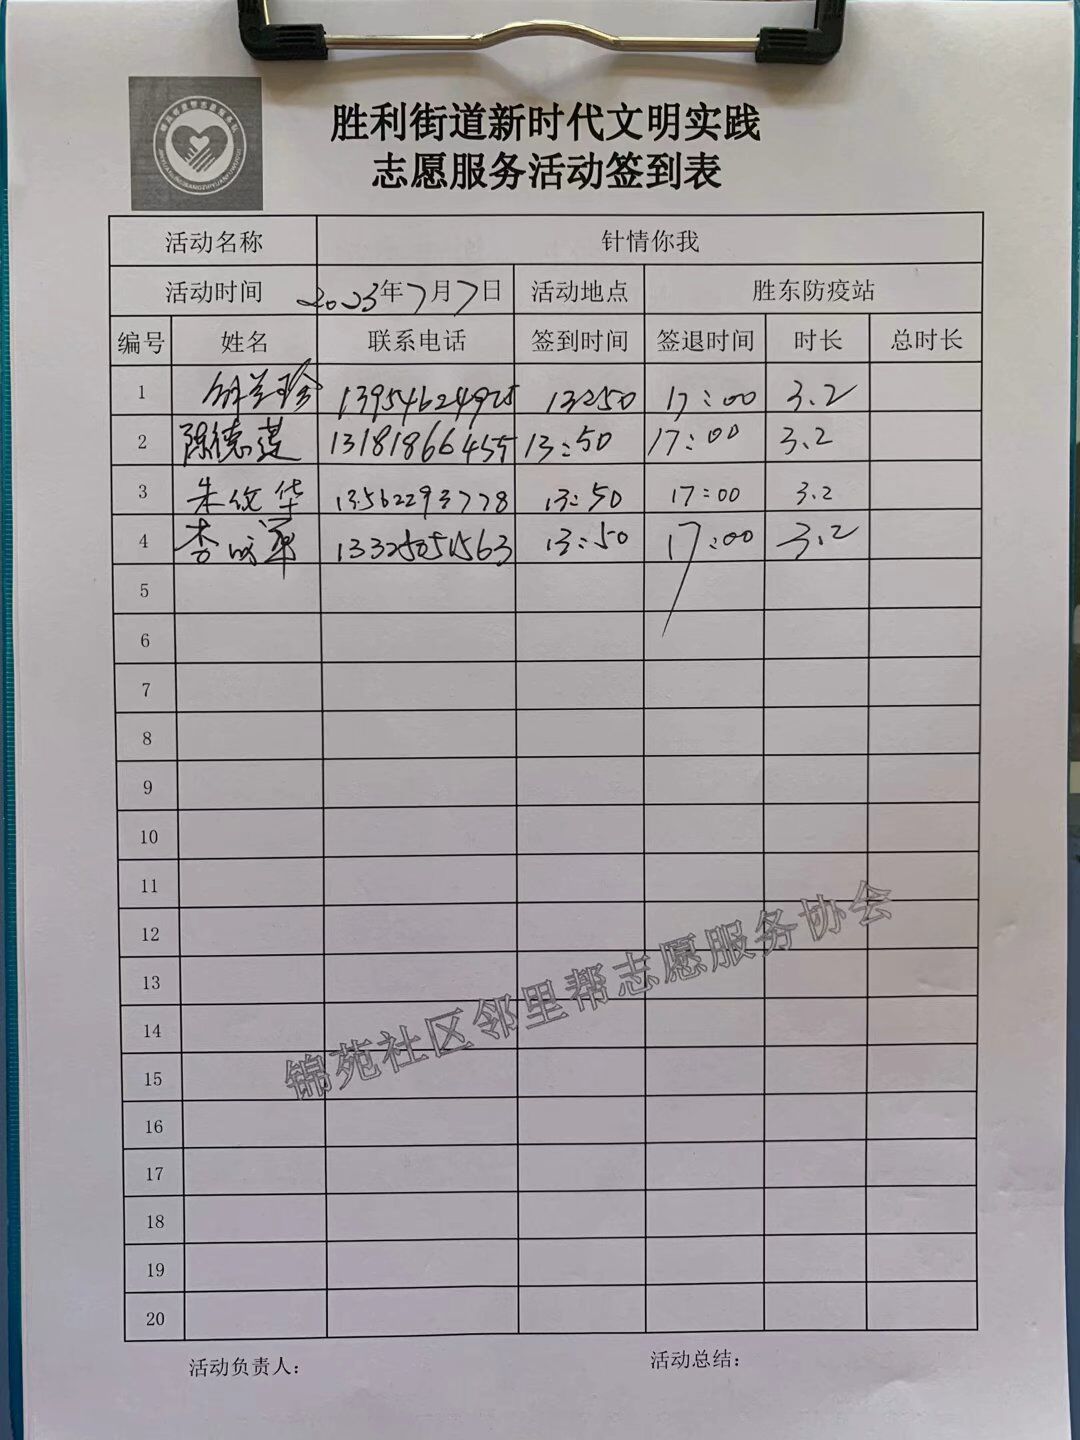 胜利街道新时代文明实践
志愿服务活动签到表
活动名称 针情你我
活动时间 2023年7月7日 活动地点 胜东防疫站
编号 姓名 联系电话 签到时间 签退时间 时长 总时长
1 13:50 17:00 3.2
2 陈德谨 13181866455 13:50 17:00 3.2
3 朱 华 13562293778 13:50 17:00 3.2
4 李 军 13325051563 13:50 17:00 3.2
5
6
7
8
9
10
11
12
13
14
15
16
17
18
19
20
锦苑社区邻里帮志愿服务协会
活动负责人: 活动总结: